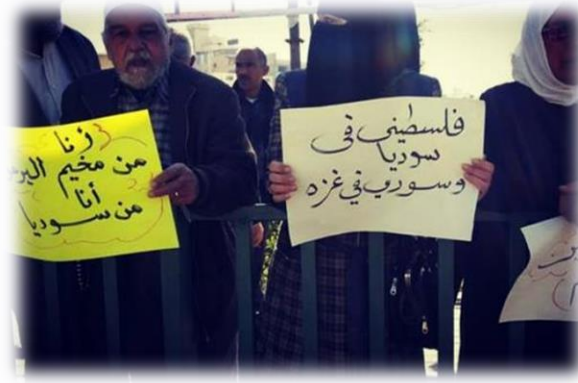 أنا
من مخيم
أنا
من سوريا
فلسطيني في
سوريا
وسوري في غزه